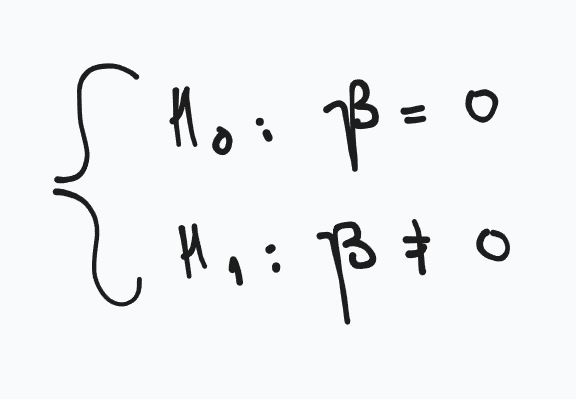 H₀: β = 0
H₁: β ≠ 0